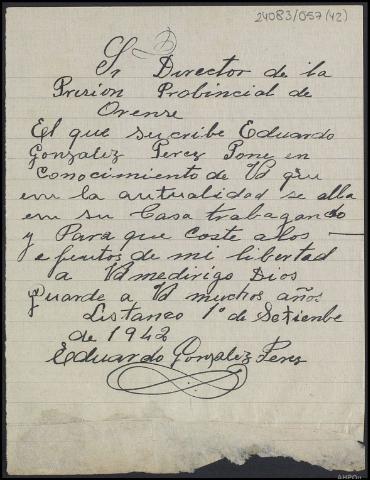 24083/057(42)
Sr Director de la
Presion Probincial de
Orense
El que sucribe Eduardo
Gonzalez Perez Pone en
Conocimiento de Vd que
en la autualidad se alla
en su Casa trabagando
y Para que coste a los
efeutos de mi libertad
a Vd me dirigo Dios
Guarde a Vd muchos años
Listanco 1º de Setienbre
de 1942
Eduardo Gonzalez Perez
AHPOu